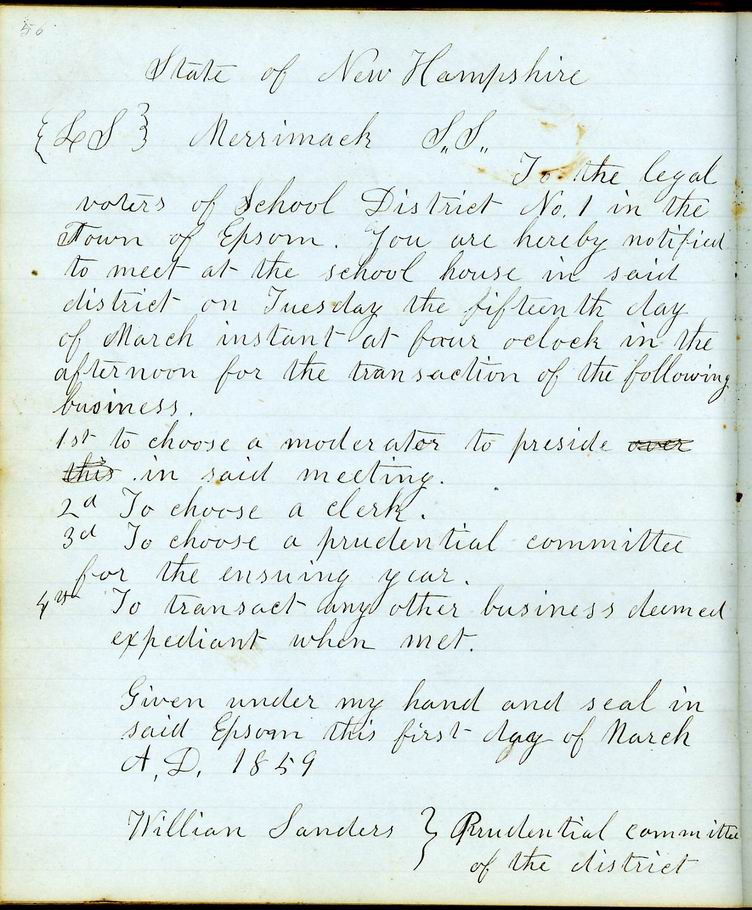 56
State of New Hampshire
{L S} Merrimack S.,S.,
To the legal
voters of School District No. 1 in the
Town of Epsom. You are hereby notified
to meet at the school house in said
district on Tuesday the fifteenth day
of March instant at four oclock in the
afternoon for the transaction of the following
business.
1st to choose a moderator to preside over
this in said meeting.
2d To choose a clerk.
3d To choose a prudential committee
for the ensuing year.
4th To transact any other business deemed
expediant when met.
Given under my hand and seal in
said Epsom this first day of March
A.D. 1859
Willian Sanders } Prudential committee
of the district